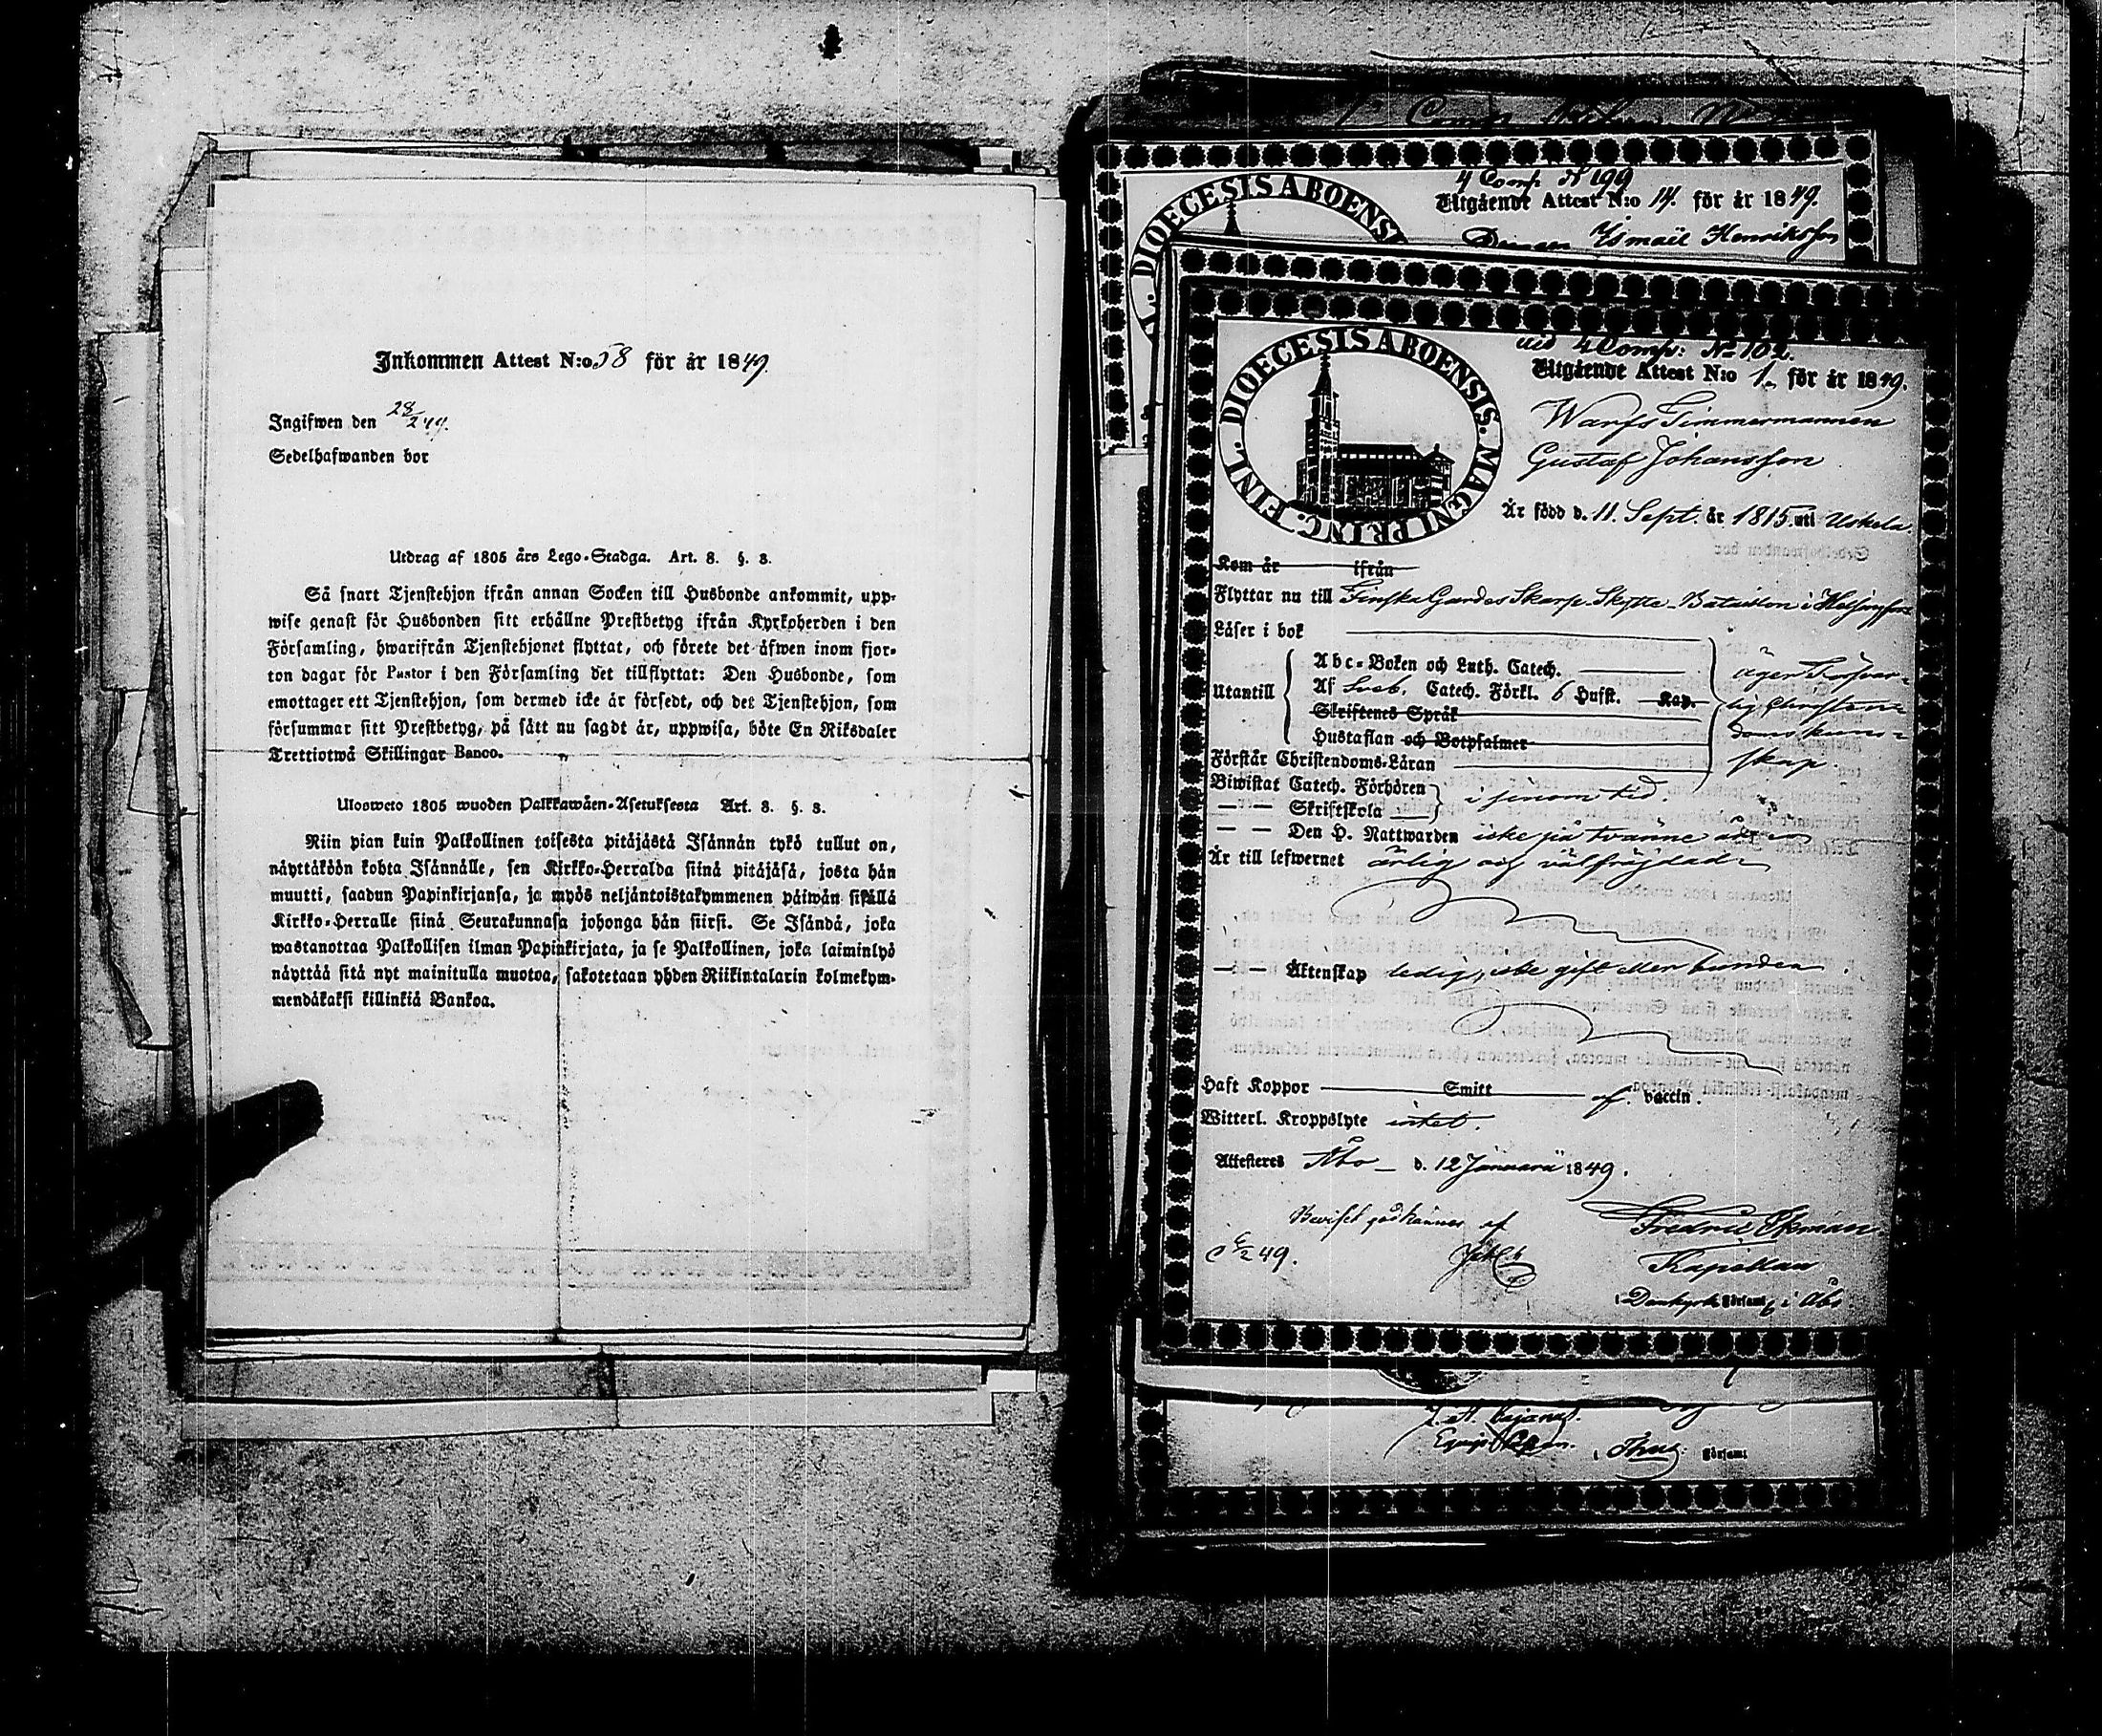 Inkommen Attest N:o 58 för år 1849.
Ingifwen den 28/2 49.
Sedelhafwanden bor
Utdrag af 1805 års Lego-Stadga. Art. 8. §. 3.
Så snart Tjenstehjon ifrån annan Socken till Husbonde ankommit, upp-
wise genast för Husbonden sitt erhållne Prestbetyg ifrån Kyrkoherden i den
Församling, hwarifrån Tjenstehjonet flyttat, och förete det äfwen inom fjor-
ton dagar för Pastor i den Församling det tillflyttat: Den Husbonde, som
emottager ett Tjenstehjon, som dermed icke är försedt, och det Tjenstehjon, som
försummar sitt Prestbetyg, på sätt nu sagdt är, uppwisa, böte En Riksdaler
Trettiotwå Skillingar Banco.
Ulosweto 1805 wuoden Palkkawäen-Asetuksesta Art. 8. §. 3.
Niin pian kuin Palkollinen toisesta pitäjästä Isännän tykö tullut on,
näyttäköön kohta Isännälle, sen Kirkko-Herralda siinä pitäjäsä, josta hän
muutti, saadun Papinkirjansa, ja myös neljäntoistakymmenen päiwän sisällä
Kirkko-Herralle siinä Seurakunnasa johonga hän siirsi. Se Isändä, joka
wastanottaa Palkollisen ilman Papinkirjata, ja se Palkollinen, joka laiminlyö
näyttää sitä nyt mainitulla muotoa, sakotetaan yhden Riikintalarin kolmekym-
mendäkaksi killinkiä Bankoa.
4 Comp. N 199
Utgående Attest N:o 14. för år 1849.
Ismaël Henriksson
DIOECESIS ABOENSI
4 Comp: N:o 102.
Utgående Attest N:o 1. för år 1849.
DIOECESIS ABOENSIS. MAGNI PRINC. FINL.
Warfs Timmermannen
Gustaf Johansson
Är född d. 11. Sept. år 1815 uti Uskela.
Kom år ifrån
Flyttar nu till Finska Gardes Skarp-Skytte-Bataillon i Helsingfors
Läser i bok
Utantill
Abc-Boken och Luth. Catech.
Af Sveb. Catech. Förkl. 6 Hufst. Kap.
Skriftenes Språk
Hustaflan och Botpsalmer
äger försvar-
lig Christen-
doms kun-
skap.
Förstår Christendoms-Läran
Biwistat Catech. Förhören
— — Skriftskola
i sinom tid.
— — Den H. Nattwarden icke på tvänne
Är till lefwernet ärlig och välfräjdad
— — Äktenskap ledig, icke gift eller bunden.
Haft Koppor Smitt af vaccin.
Witterl. Kroppslyte intet.
Attesteras Åbo d. 12 Januarii 1849.
Beviset godkännes af
6/2 49.
Fredric Ekman
Kapellan
i Domkyrko Församl. i Åbo
i Församl.